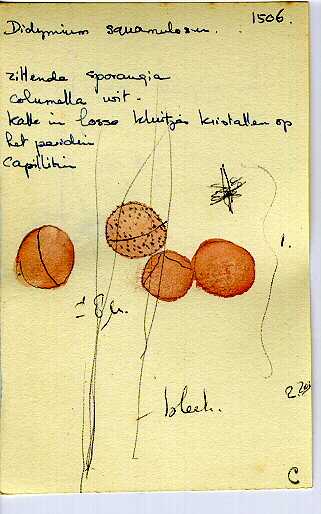 1506.
Didymium squamulosum.
zittende sporangia
columella wit -
Kalk in losse kluitjes kristallen op
het peridium
Capillitium
1.
± 8 µ.
bleek.
C